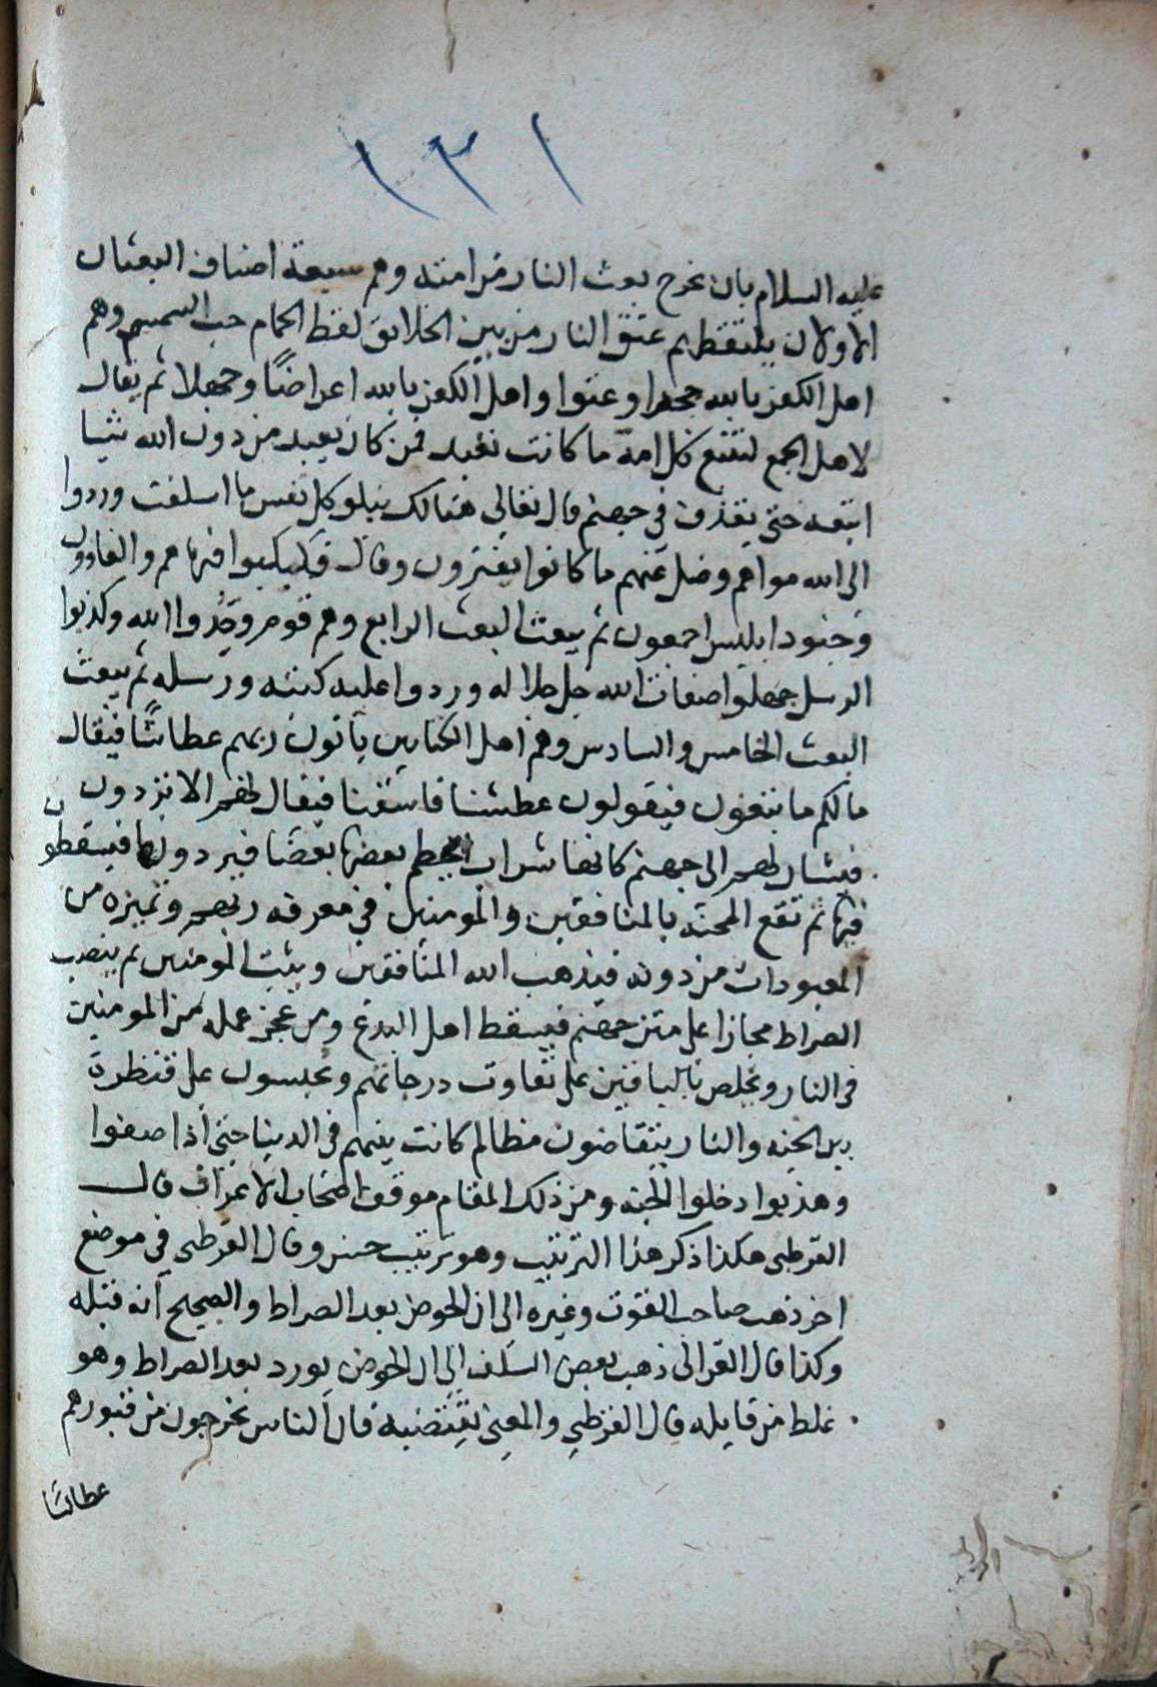 ١٣١
عليه السلام بان يخرج بعث النار من امته وهم سبعة اصناف البعثان
الاولان يلتقطهم عنق النار من بين الخلايق لقط الحمام حب السمسم وهم
اهل الكفر بالله جحدا وعتوا واهل الكفر بالله اعراضًا وجهلا ثم يقال
لاهل الجمع لتتبع كل امة ما كانت تعبد فمن كان يعبد من دون الله شيا
اتبعه حتى يقذف في جهنم قال تعالى هنالك تبلو كل نفس ما اسلفت وردوا
الى الله مولاهم وضل عنهم ما كانوا يفترون وقال فكبكبوا فيها هم والغاوون
وجنود ابليس اجمعون ثم يبعث البعث الرابع وهم قوم وحدوا الله وكذبوا
الرسل جهلوا صفات الله جل جلاله وردوا عليه كتبه ورسله ثم يبعث
البعث الخامس والسادس وهم اهل الكتابين ياتون ربهم عطاشًا فيقال
مالكم ما تبتغون فيقولون عطشنا فاسقنا فيقال لهم الا تردون
فيشار لهم الى جهنم كانها شراب يحطم بعضها بعضا فيردونها فيسقطون
فيها ثم تقع المحنة بالمنافقين والمومنين في معرفة ربهم وتميزه من
المعبودات من دونه فيذهب الله المنافقين ويثبت المومنين ثم ينصب
الصراط مجازا على متن جهنم فيسقط اهل البدع ومن عجز عمله من المومنين
في النار ويخلص بالباقين على تفاوت درجاتهم ويحبسون على قنطرة
بين الجنه والنار يتقاضون مظالم كانت بينهم في الدنيا حتى اذا صفوا
وهذبوا دخلوا الجنه ومن ذلك المقام موقف اصحاب الاعراف قال
القرطبي هكذا ذكر هذا الترتيب وهو ترتيب حسن وقال القرطبي في موضع
اخر ذهب صاحب القوت وغيره الى ان الحوض بعد الصراط والصحيح انه قبله
وكذا قال الغزالى ذهب بعض السلف الى ان الحوض يورد بعد الصراط وهو
غلط من قايله قال القرطبي والمعنى يقتضيه فان الناس يخرجون من قبورهم
عطاشا